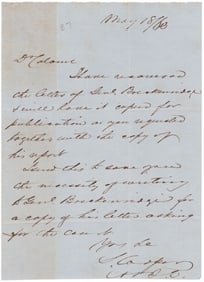 87
May 18/63
Dr Colonel
I have received
the letter of Genl Breckenridge
& will have it copied for
publication as you requested
together with the copy of
his report
I send this to save you
the necessity of writing
to Genl Breckenridge for
a copy of his letter asking
for the court
Yrs &c
S. Cooper